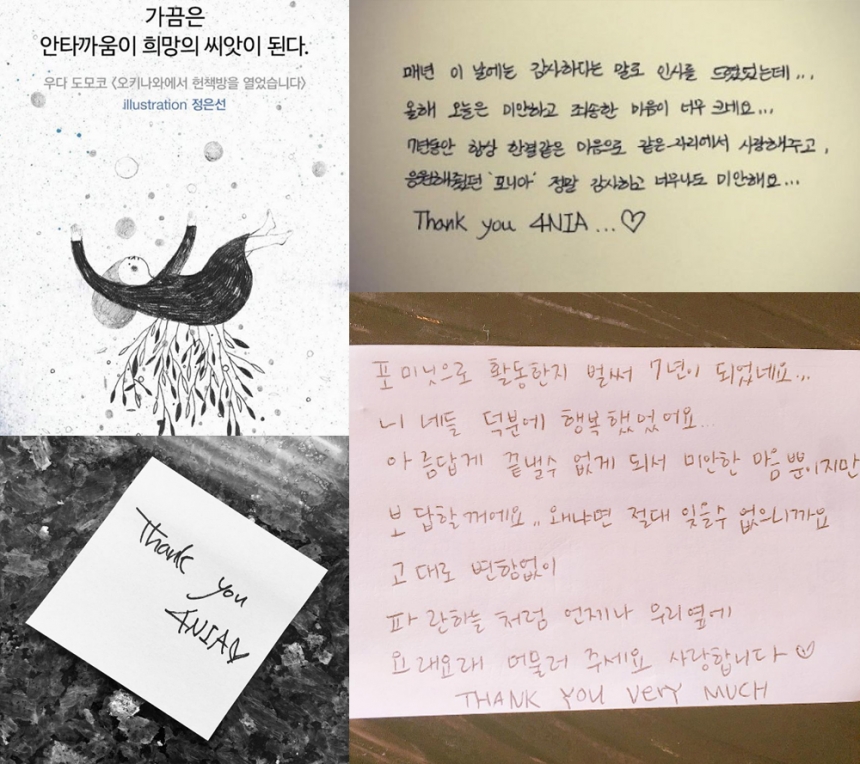 가끔은
안타까움이 희망의 씨앗이 된다.
우다 도모코 〈오키나와에서 헌책방을 열었습니다〉
illustration 정은선
매년 이 날에는 감사하다는 말로 인사를 드렸었는데...
올해 오늘은 미안하고 죄송한 마음이 너무 크네요...
7년동안 항상 한결같은 마음으로 같은 자리에서 사랑해주고,
응원해줬던 '포니아' 정말 감사하고 너무나도 미안해요...
Thank you 4NIA...♡
Thank
you
4NIA♡
포미닛으로 활동한지 벌써 7년이 되었네요...
니 네들 덕분에 행복했었어요...
아 름답게 끝낼수 없게 되서 미안한 마음뿐이지만
보 답할꺼에요.. 왜냐면 절대 잊을수 없으니까요
고 대로 변함없이
파 란하늘 처럼 언제나 우리옆에
요 래요래 머물러 주세요 사랑합니다♡
THANK YOU VERY MUCH